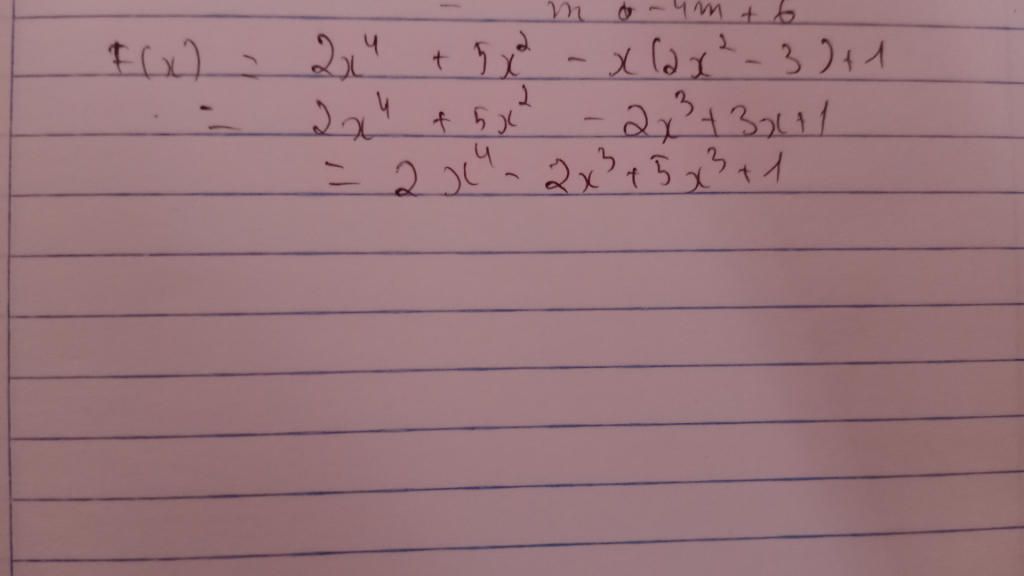 - m 6 - 4m + 6
F(x) = 2x⁴ + 5x² - x(2x² - 3) + 1
= 2x⁴ + 5x² - 2x³ + 3x + 1
= 2x⁴ - 2x³ + 5x³ + 1